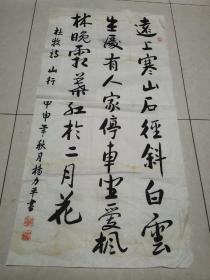 遠上寒山石徑斜白雲
生處有人家停車坐愛楓
林晚霜葉紅於二月花
杜牧詩 山行 甲申年秋月楊力平書